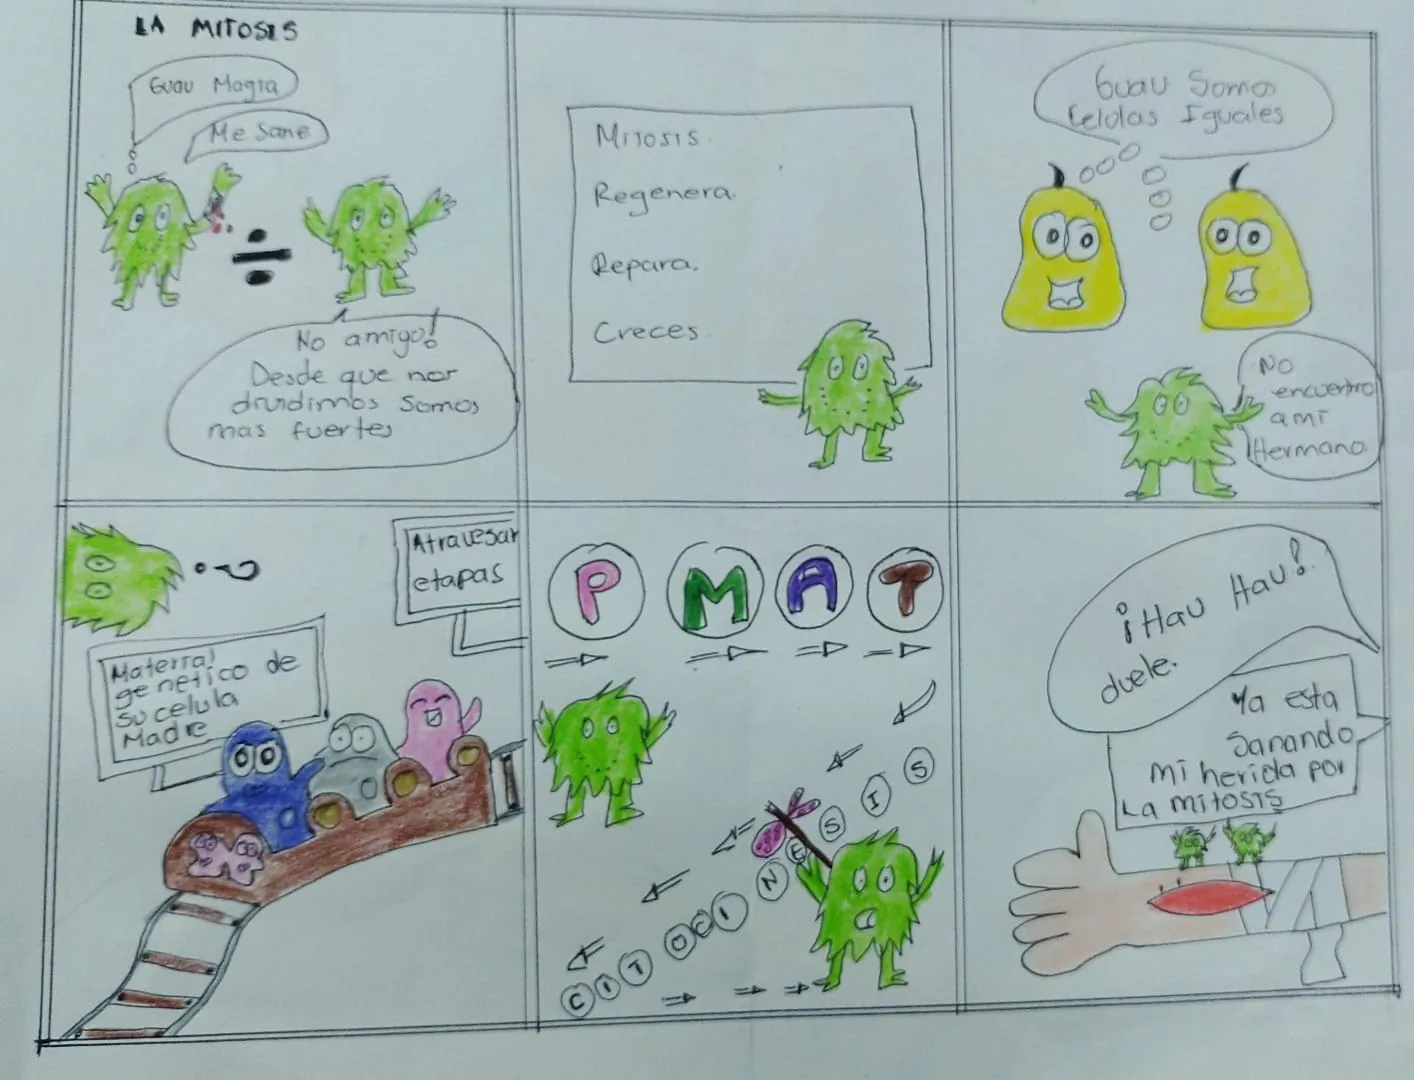 LA MITOSIS
Guau Magia
Me Sane
No amigo!
Desde que nos
dividimos somos
mas fuertes
Mitosis.
Regenera.
Repara.
Creces.
Guau Somos
Celulas Iguales
No
encuentro
a mi
Hermana
Atravesar
etapas
Material
genetico de
su celula
Madre
P M A T
CITOCINESIS
¡Hau Hau!
duele.
Ya esta
Sanando
mi herida por
La mitosis